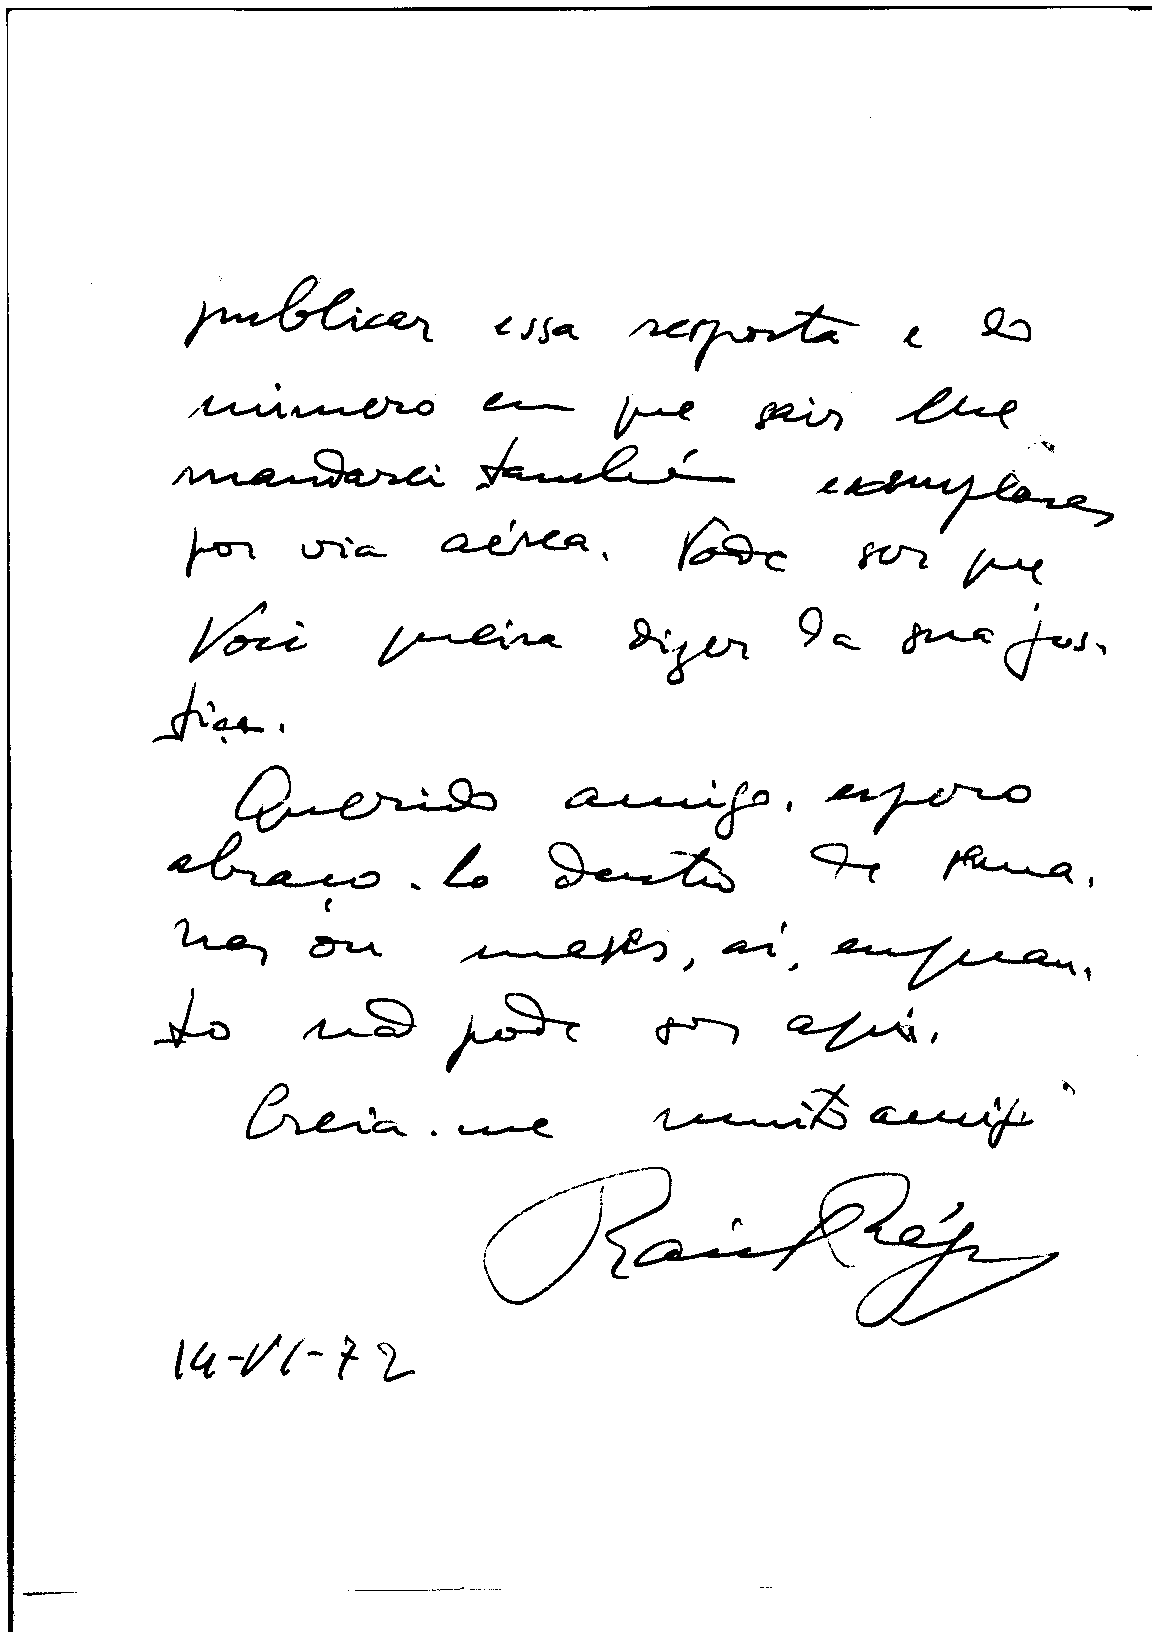 publicar essa resposta e do
número em que sair lhe
mandarei também exemplares
por via aérea. Pode ser que
Você queira dizer da sua jus-
tiça.
Querido amigo, espero
abraço-lo dentro de sema-
nas ou meses, aí, enquan-
to não pode ser aqui.
Creia-me muito amigo
Raul Rêgo
14-VI-72